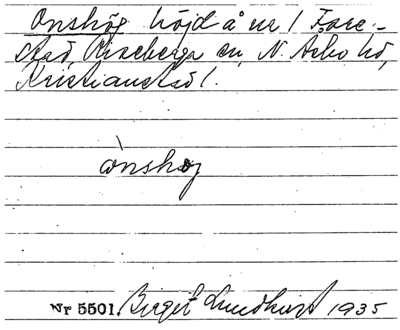 Onshög höjd å nr 1 Fare-
stad, Araslöv en, N. Åsbo hd,
Kristianstad l.
ònshøg
Nr 5501. Birgit Lundkvist 1935